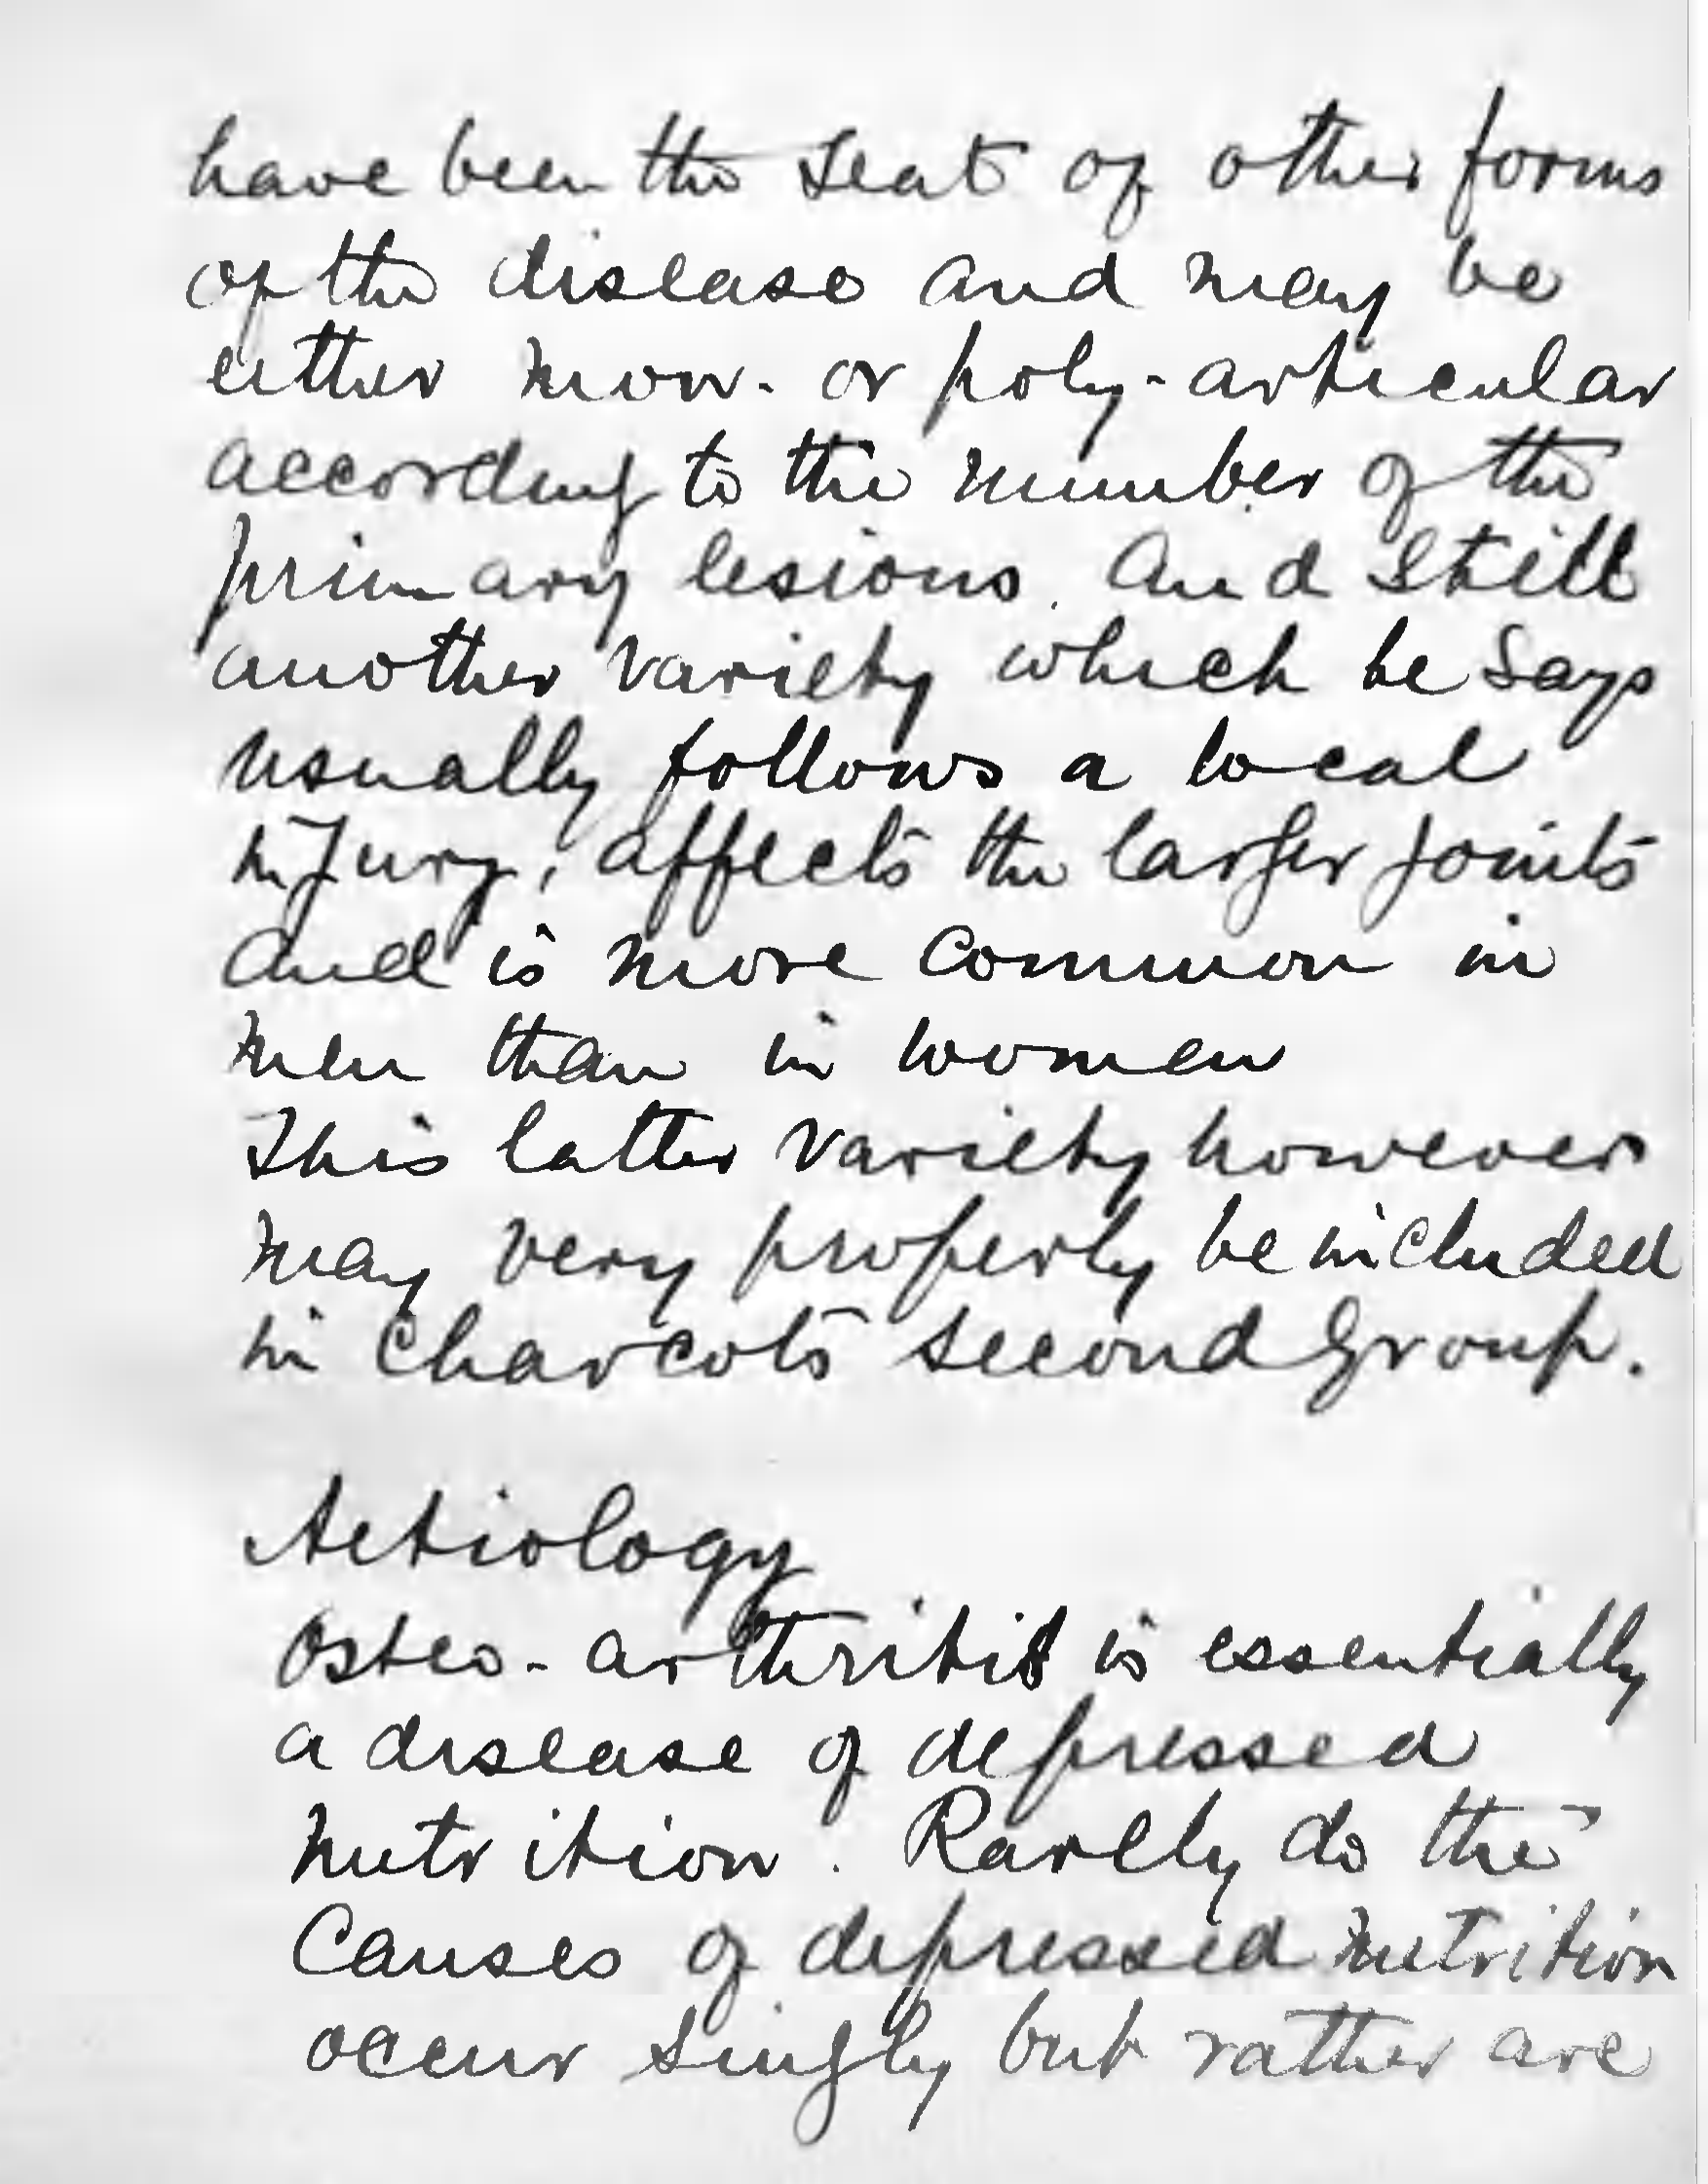 have been the seat of other forms
of the disease and may be
either mon- or poly-articular
according to the number of the
primary lesions. And still
another variety which he says
usually follows a local
injury, affects the larger joints
and is more common in
men than in women
This latter variety however
may very properly be included
in Charcots second Group.
Aetiology
Osteo-arthritis is essentially
a disease of depressed
nutrition. Rarely do the
Causes of depressed nutrition
occur singly but rather are